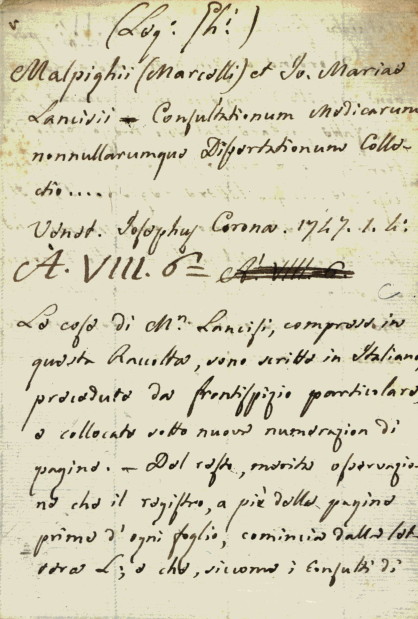 (Leg.: Ph.i)
Malpighii (Marcelli) et Jo. Mariae
Lancisii = Consultationum Medicarum
nonnullarumque Dissertationum Colle-
ctio....
Venet. Josephus Corona. 1747. 1. 4.
A. VIII. 6= A. VIII. 6
Le cose di M.r Lancisi, comprese in
questa Raccolta, sono scritte in Italiano,
precedute da frontispizio particolare,
e collocate sotto nuova numerazion di
pagine. - Del resto, merita osservazio-
ne che il registro, a piè delle pagine
prime d'ogni foglio, comincia dalla let-
tera L; e che, siccome i Consulti di